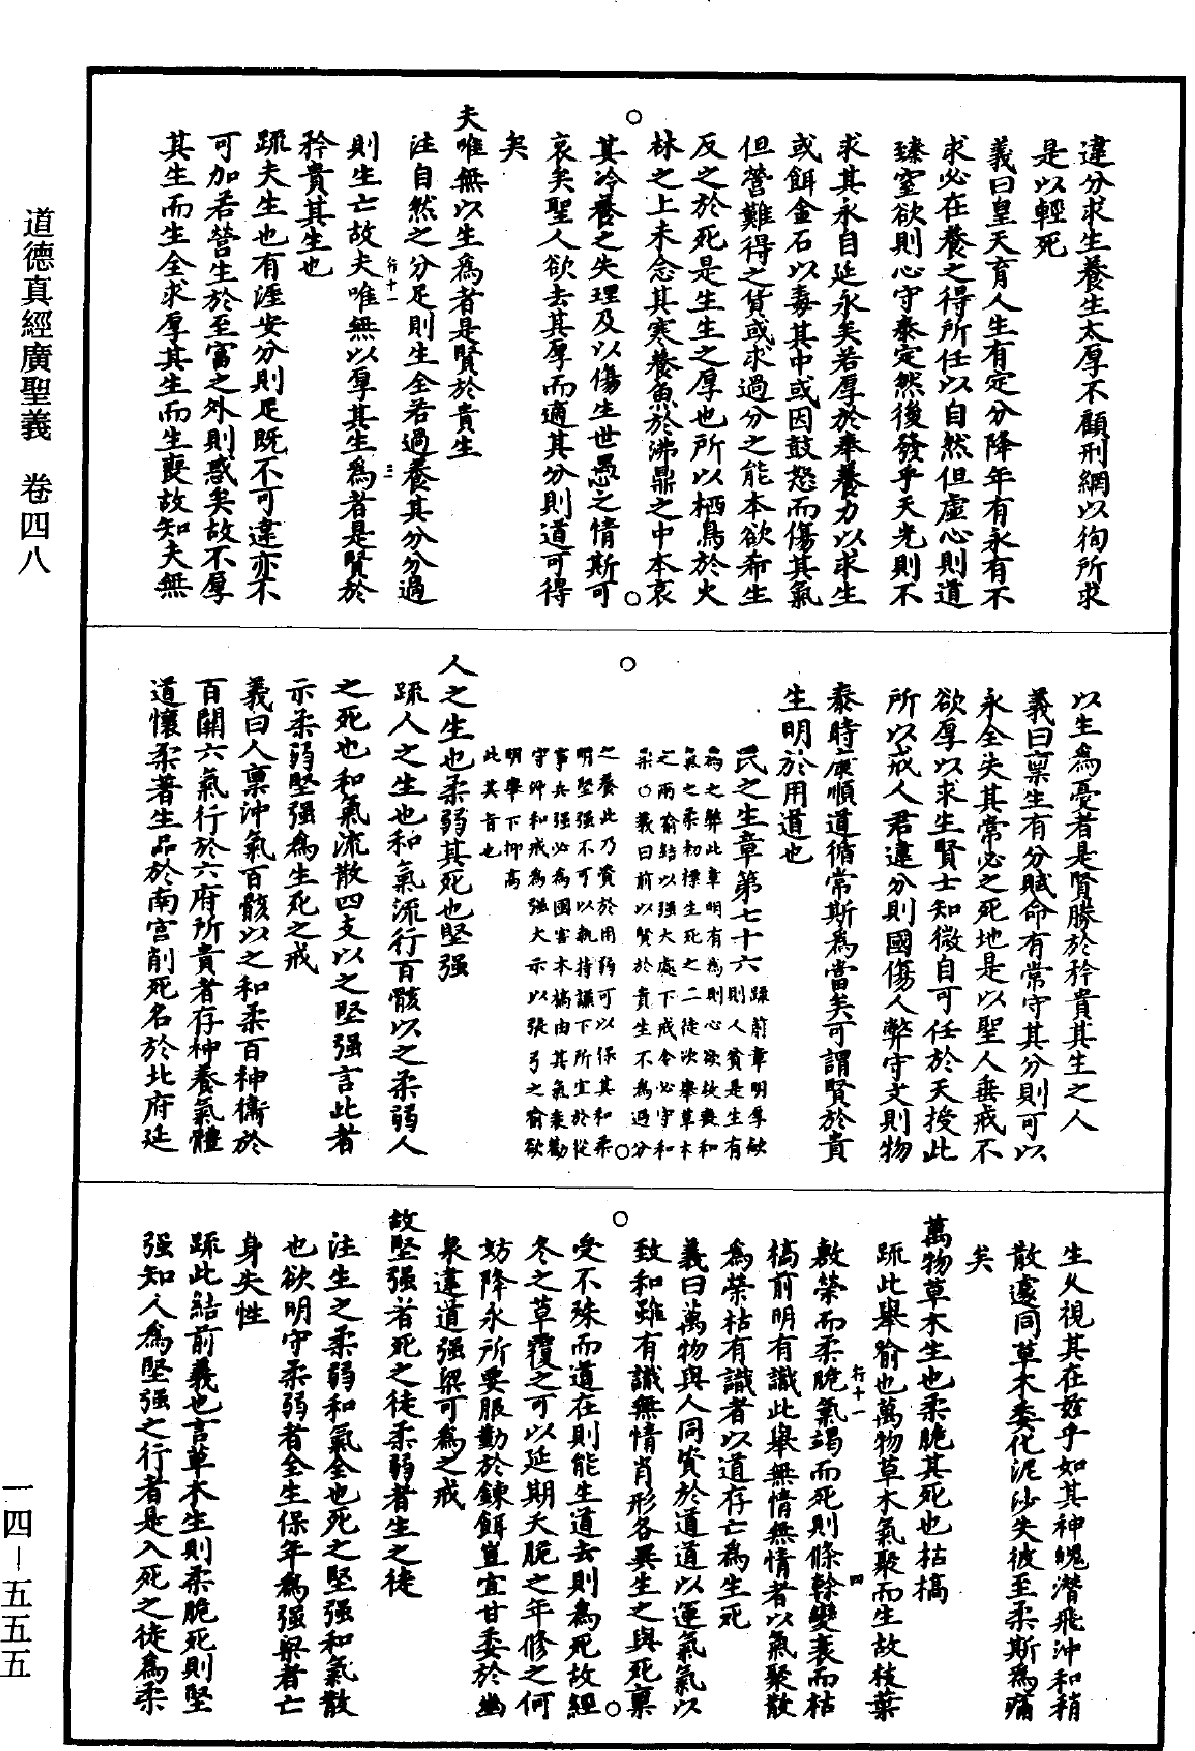 道德真經廣聖義　卷四八
違分求生養生太厚不顧刑網以徇所求
是以輕死
義曰皇天育人生有定分降年有永有不
求必在養之得所任以自然但虛心則道
臻窒欲則心守泰定然後發乎天光則不
求其永自延永矣若厚於奉養力以求生
或餌金石以毒其中或因鼓怒而傷其氣
但營難得之貨或求過分之能本欲希生
反之於死是生生之厚也所以栖鳥於火
林之上未念其寒養魚於沸鼎之中本哀
其冷養之失理及以傷生世愚之情斯可
哀矣聖人欲去其厚而適其分則道可得
矣
夫唯無以生爲者是賢於貴生
注自然之分足則生全若過養其分分過
則生亡故夫唯無以厚其生爲者是賢於
矜貴其生也
疏夫生也有涯安分則足既不可違亦不
可加若營生於至富之外則惑矣故不厚
其生而生全求厚其生而生喪故知夫無
以生爲憂者是賢勝於矜貴其生之人
義曰稟生有分賦命有常守其分則可以
永全失其常必之死地是以聖人垂戒不
欲厚以求生賢士知微自可任於天授此
所以戒人君違分則國傷人弊守文則物
泰時康順道循常斯爲當矣可謂賢於貴
生明於用道也
民之生章第七十六
疏前章明厚斂則人貧是生有
爲之弊此章明有爲則心欲故喪和
氣之柔初標生死之二徒次舉草木
之兩喻結以强大處下戒令必守和
柔○義曰前以賢於貴生不爲過分
之養此乃資於用弱可以保其和柔
明堅强不可以執持謙下所宜於從
事兵强必爲國害木槁由其氣衰勸
守沖和戒爲强大示以張弓之喻欲
明舉下抑高
此其旨也
人之生也柔弱其死也堅强
疏人之生也和氣流行百骸以之柔弱人
之死也和氣流散四支以之堅强言此者
示柔弱堅强爲生死之戒
義曰人稟沖氣百骸以之和柔百神衞於
百關六氣行於六府所貴者存神養氣體
道懷柔著生品於南宮削死名於北府延
生久視其在玆乎如其神魄潛飛沖和稍
散遽同草木委化泥沙失彼至柔斯爲痛
矣
萬物草木生也柔脆其死也枯槁
疏此舉喻也萬物草木氣聚而生故枝葉
敷榮而柔脆氣竭而死則條幹變衰而枯
槁前明有識此舉無情無情者以氣聚散
爲榮枯有識者以道存亡爲生死
義曰萬物與人同資於道道以運氣氣以
致和雖有識無情肖形各異生之與死稟
受不殊而道在則能生道去則爲死故經
冬之草覆之可以延期夭脆之年修之何
妨降永所要服勤於鍊餌豈宜甘委於幽
泉違道强梁可爲之戒
故堅强者死之徒柔弱者生之徒
注生之柔弱和氣全也死之堅强和氣散
也欲明守柔弱者全生保年爲强梁者亡
身失性
疏此結前義也言草木生則柔脆死則堅
强知人爲堅强之行者是入死之徒爲柔
一四－五五五